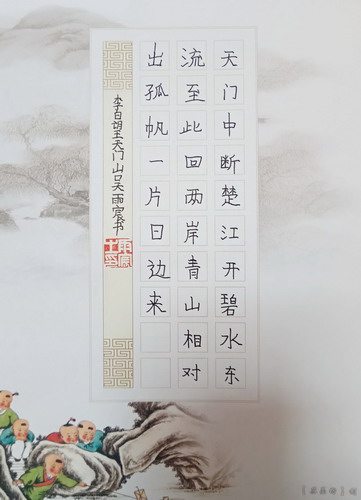 天门中断楚江开碧水东
流至此回两岸青山相对
出孤帆一片日边来
李白望天门山吴雨宸书